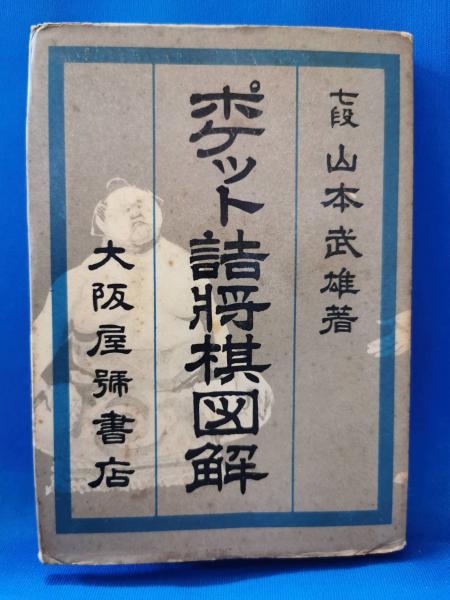 七段 山本武雄著
ポケット詰將棋図解
大阪屋號書店